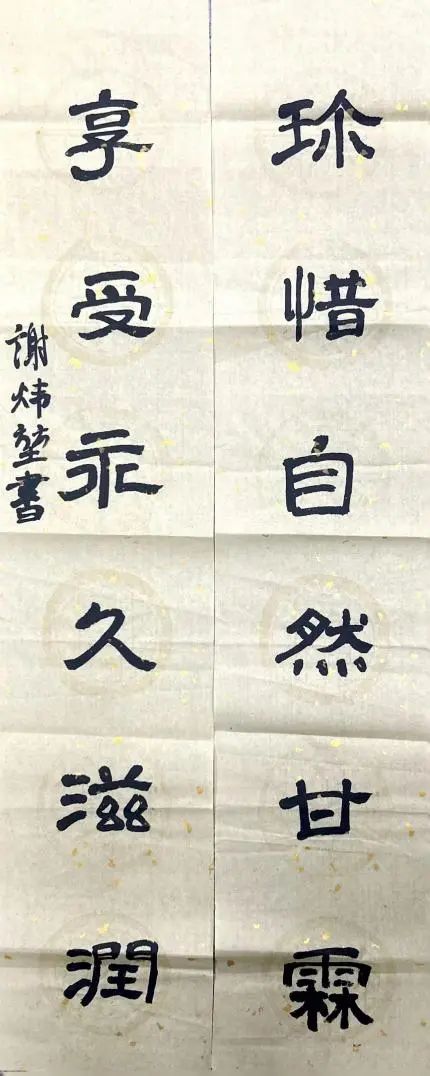 珎惜自然甘霖
享受永久滋潤
謝炜堃書